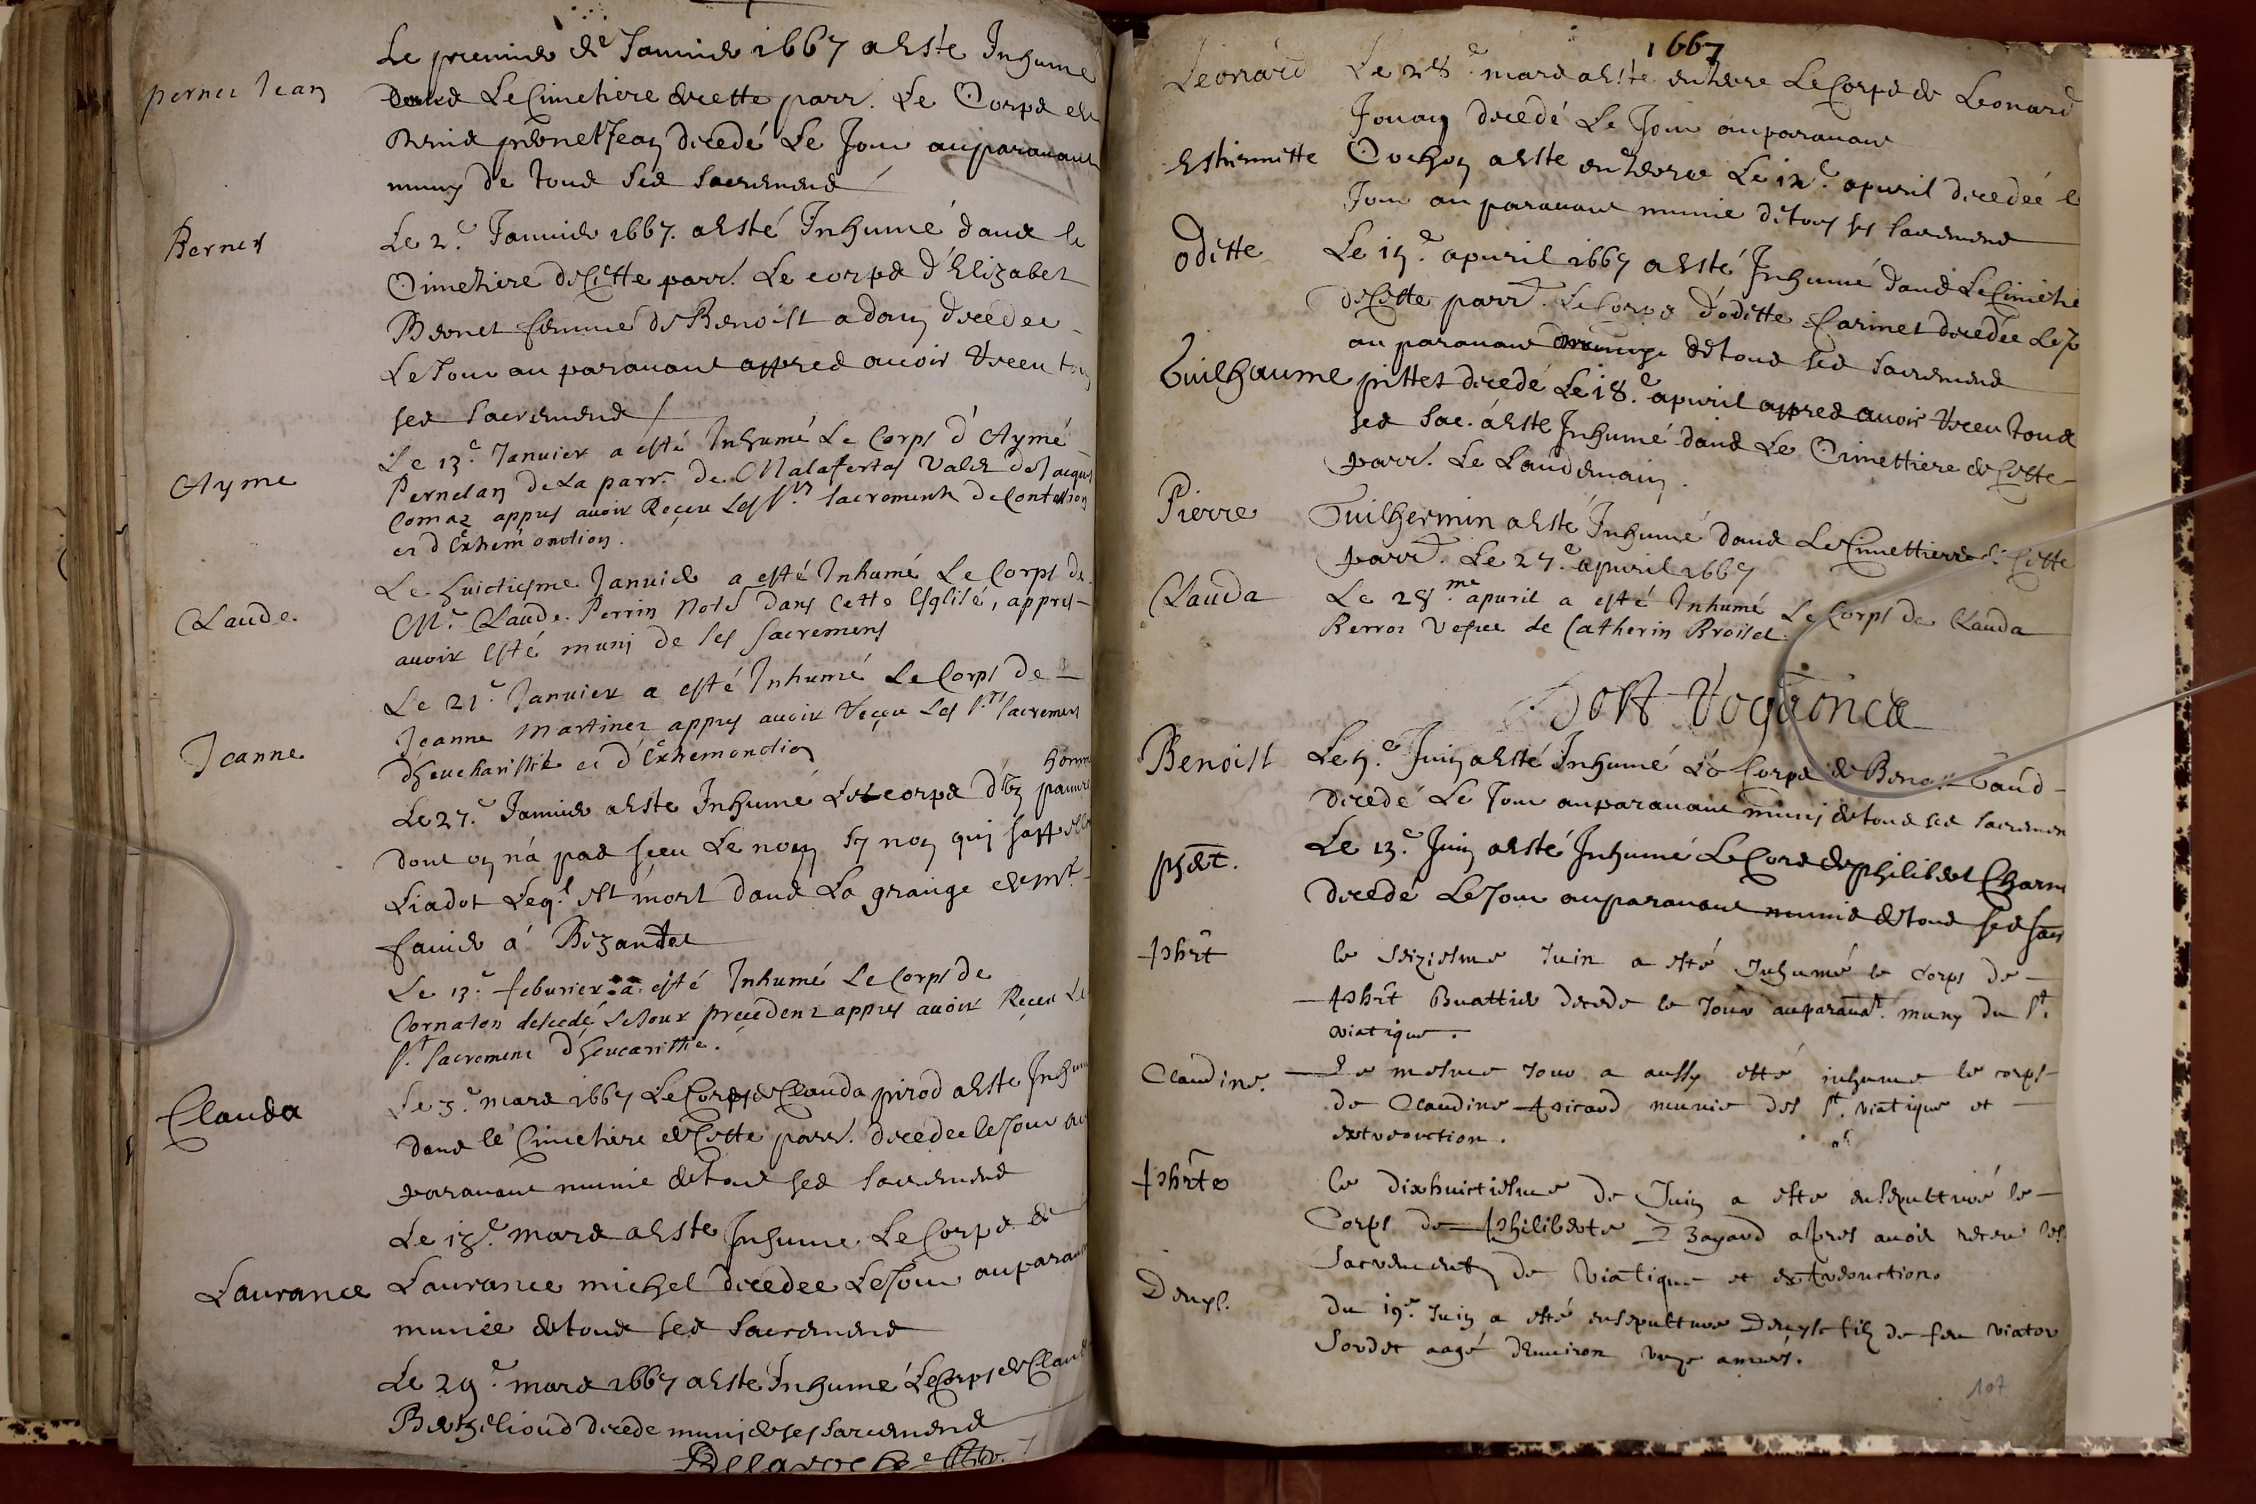 Le premier de Janvier 1667 a Esté Inhumé
perner Jean
dans Le Cimetiere de cette parr. Le Corps de
pernet Jean decedé Le Jour auparavant
muny de tous ses sacremens
Berner
Le 2.e Janvier 1667. a Esté Inhumé dans le
Cimetiere de Cette parr. Le corps d'Elizabet
Bernet femme de Benoist adam decedee
Le Jour au paravant appres avoir Receu tous
ses sacremens
Le 13.e Janvier a esté Inhumé Le Corps d'Aymé
Ayme
Pernelan De La parr. de Malafertas Valet de Jacques
Comaz appres avoir Reçeu Les Sts. sacremens de Confession
et d'Extremonction.
Le huictiesme Janvier a esté Inhumé Le Corps de
Claude.
Mr. Claude Perrin Note dans Cette Esglise, appres
avoir Esté muni de ses sacremens
Le 21.e Janvier a esté Inhumé Le Corps de
Jeanne
Jeanne Martinez appres avoir Reçeu Les Sts. sacremens
d'Heucharistie et d'Extremonction
homme
Le 27.e Janvier a Esté Inhumé Le corps d'un pauvre
dont on n'a pas sceu Le nom sy non quj
Liadot Leql. est mort dans La grange de Mr.
favier a Bezandes
Le 13.e feburier a esté Inhumé Le Corps de
Cornaton decedé Le Jour precedent appres avoir Reçeu Le
St. sacrement d'Heucaristie.
Clauda
Le 3.e mars 1667 Le Corps de Clauda pirod a Esté Inhumé
dans le Cimetiere de Cette parr. decedee le Jour au
paravant munie de tous ses sacremens
Le 18.e mars a Esté Inhumé Le Corps de
Laurance
Laurance michel decedee Le Jour auparavant
munie de tous ses sacremens
Le 29.e mars 1667 a Esté Inhumé Le Corps de Claude
Berthelioud decede munj de ses sacremens
1667
Leonard
Le 28.e mars a Esté enterre Le Corps de Leonard
Jouan decedé Le Jour auparavant
Esthiennette
Cochon a Esté enterree Le 12.e apvril decedeé le
Jour au paravant munie de tous ses sacremens
Oditte
Le 15.e apvril 1667 a Esté Inhumé dans Le Cimetie
de Cette parr. Le Corps d'oditte Carinet decedée Le Jo
au paravant de tous ses sacremens
Guilhaume
pittet decedé Le 18.e apvril appres avoir Receu tous
ses sac. a Esté Inhumé dans Le Cimettiere de Cette
parr. Le Landemain.
Pierre
Guilhermin a Esté Inhumé dans Le Cimettiere de Cette
parr. Le 27.e apvril 1667
Clauda
Le 28.me apvril a esté Inhumé Le Corps de Clauda
Berros Vefue de Catherin Broiset.
Benoist
Le 5.e Juin a Esté Inhumé Le Corps de Benoist Vaud
decedé Le Jour auparavant munj de tous ses sacremen
phbt.
Le 13.e Juin a Esté Inhumé Le Cors de philibert Charn
decedé Le Jour auparavant munis de tous ses sacr
phbt
le seiziesme Juin a esté Inhumé le Corps de
phbt Buattier decede le Jour auparavat. muny du St.
viatique.
Claudine.
Le mesme Jour a aussy esté inhumé le corps
de Claudine Apicard munie des St. viatique et
extreonction.
phbte
le dixhuictiesme de Juin a esté ensepulturé le
Corps de philiberte Bayard aspres avoir receu les
Sacrements de Viatique et extreonction.
Denys.
Du 19.e Juin a esté ensepulture Denys fils de feu Viator
Sordet aagé d'environ unze années.
107